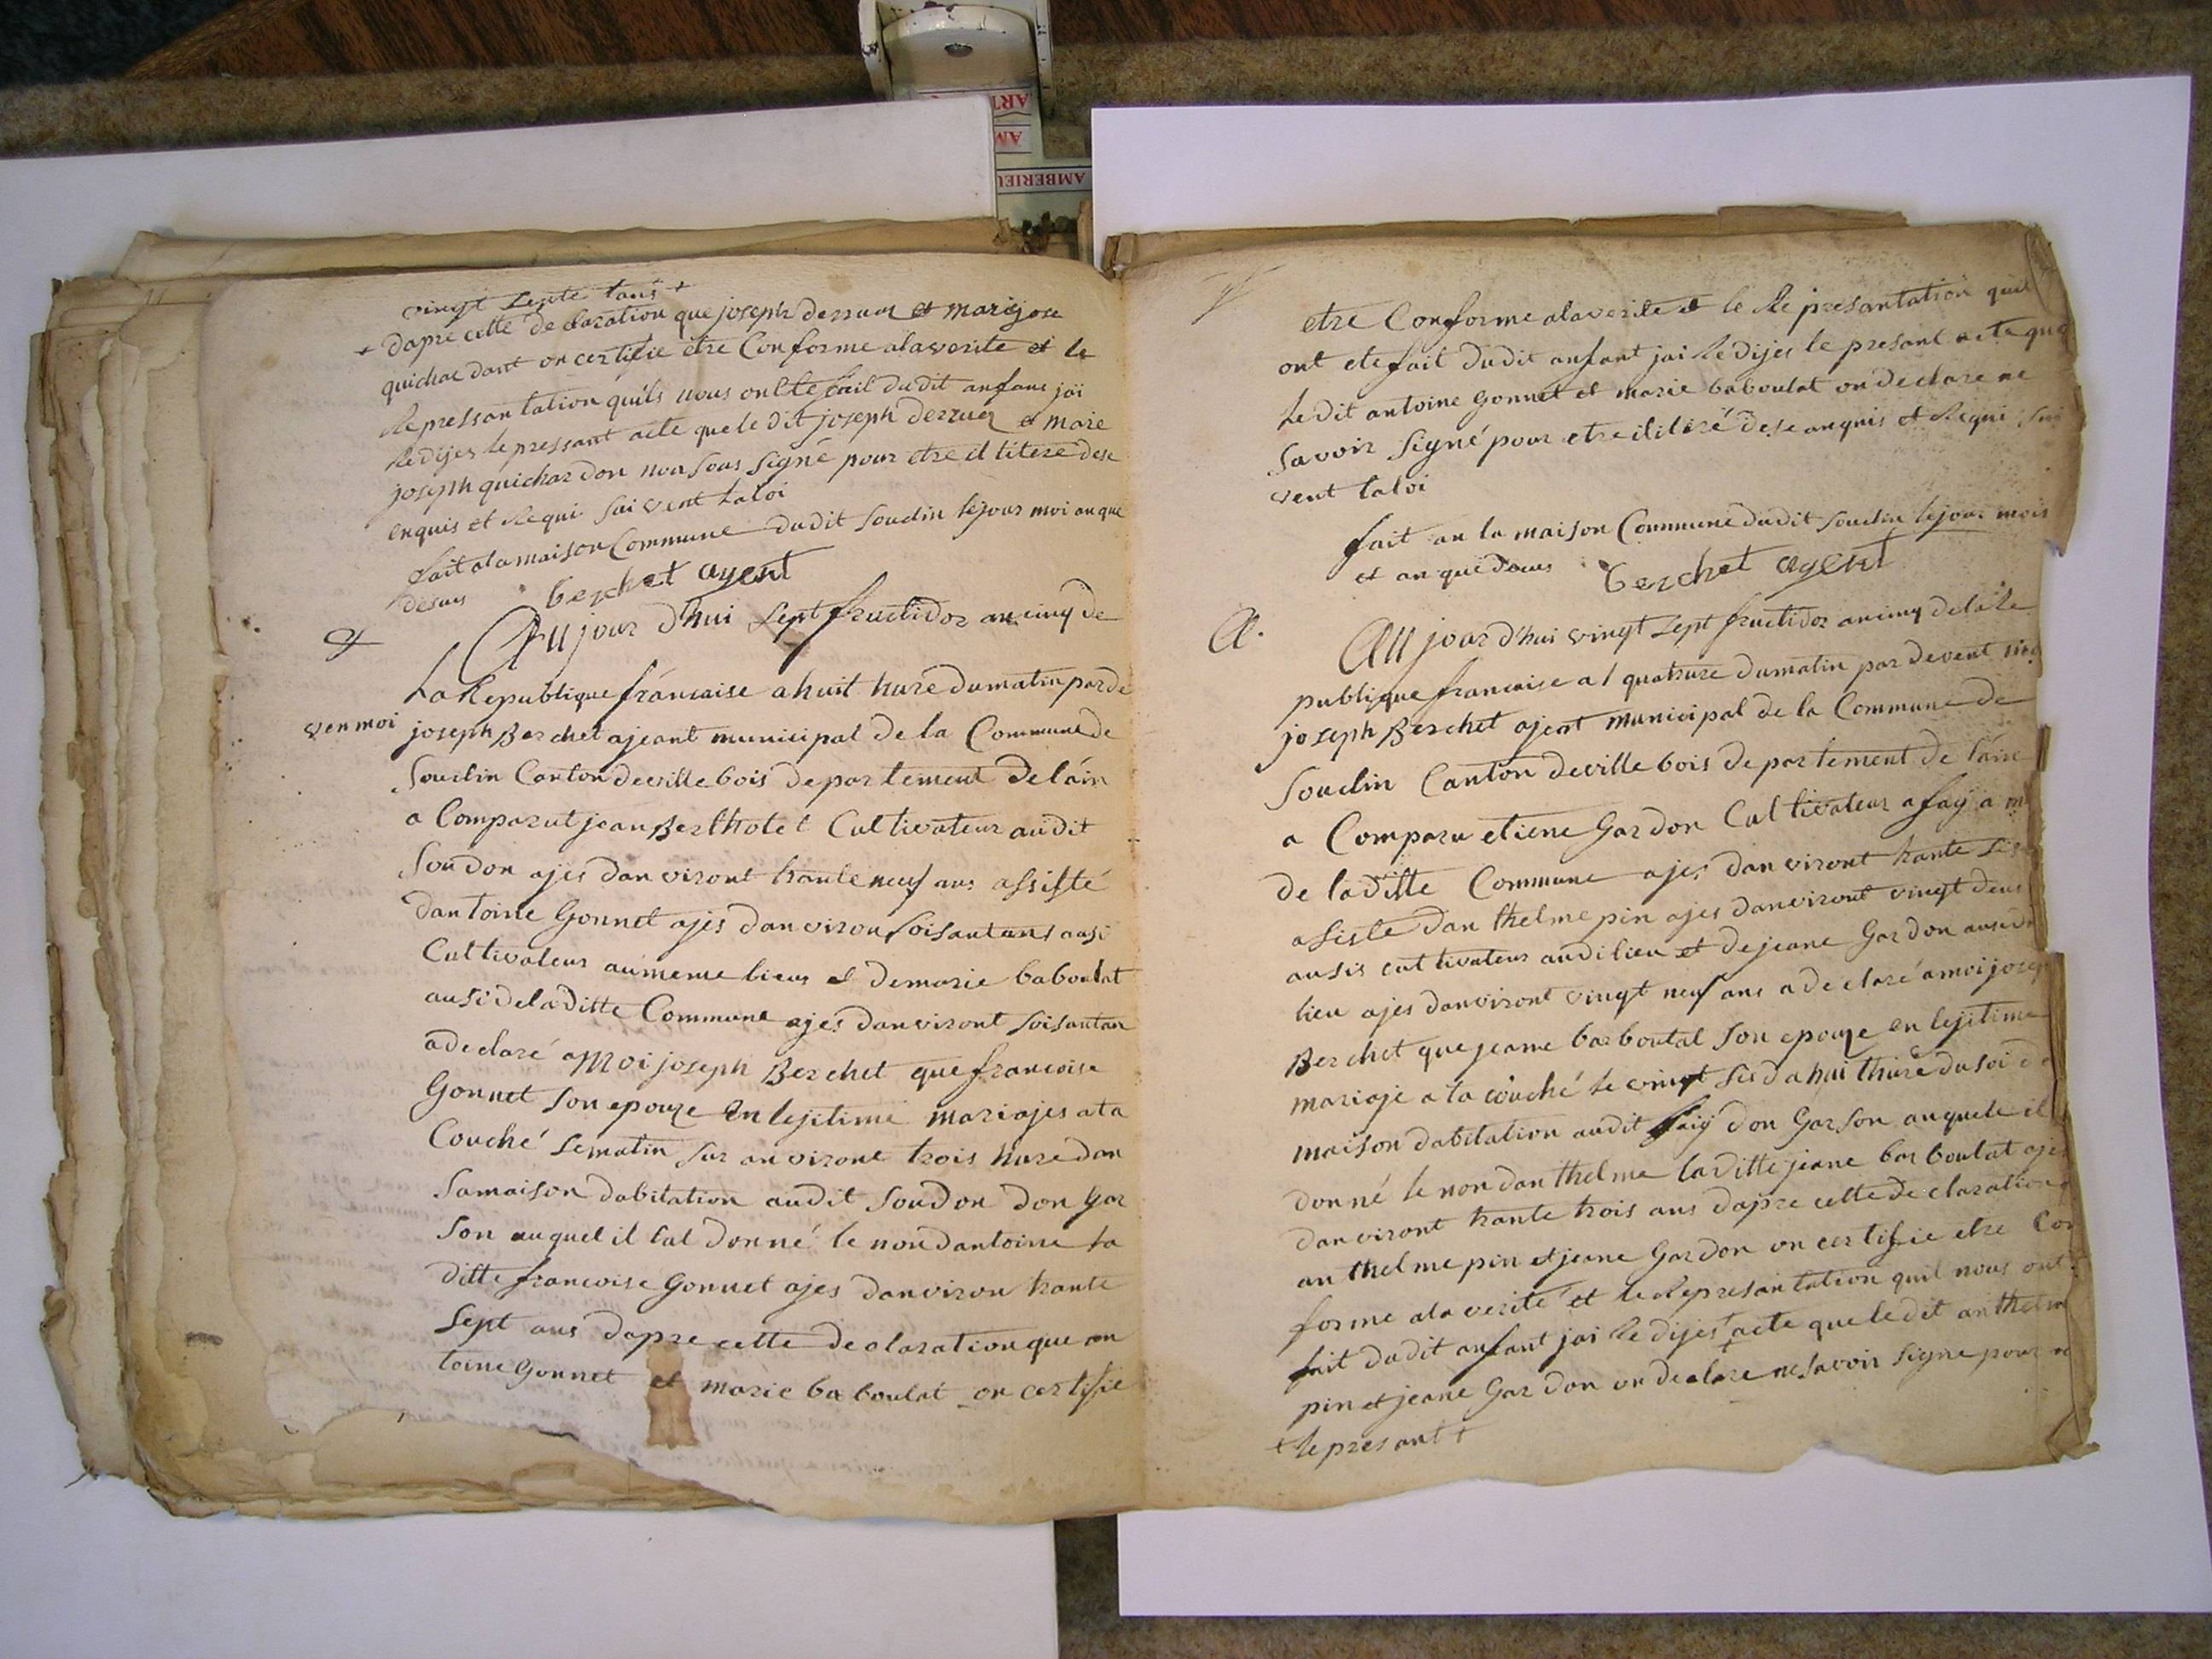 ART
AM
AMBERIEU
vingt septe tans +
+ dapre cette declaration que joseph derruer et marie jose
quichardant on certifie etre Conforme alaverite et le
Represantation quils nous onlte fail dudit anfans jai
Redijes le pressant acte que le dit joseph derruer et marie
joseph quichardon non sous signé pour etre il literé dese
enquis et Requi suivent laloi
fait ala maison Commune dudit souclin lejour moi an que
desus berchet agent
Aujour d'hui sept fructidor an cinq de
La Republique francaise a huit hure dumatin par de
ven moi joseph Berchet ajeant municipal de la Commune de
Souclin Canton deville bois departement delain
a Comparut jean Berthotet Cultivateur audit
Soudon ajes danviront trante neuf ans assisté
dantoine Gonnet ajes danviron soisantans ausi
Cultivateur aumeme lieus et demarie baboulat
ausi deladitte Commune ajes danviront soisantan
adeclaré amoi joseph Berchet que francoise
Gonnet son epouze en lejitime mariajes ata
Couché lematin sur anviront trois hure dan
samaison dabitation audit soudon don gar
son auquel il lat donné le nondantoine la
ditte francoise Gonnet ajes danviron trante
sept ans dapre cette declaration que an
toine Gonnet et marie baboulat on certifie
etre Conforme alaverite et le Represantation quil
ont ete fait dudit anfant jai Redijes le presant acte que
ledit antoine Gonnet et marie baboulat on declare ne
savoir signé pour etre il literé dese anquis et Requi sui
vent laloi
fait an la maison Commune dudit souclin lejour mois
et an que desus berchet agent
A. Aujourd'hui vingt sept fructidor ancinq dela Re
publique francaise a quatrure dumatin par devent moi
joseph Berchet ajent municipal de la Commune de
Souclin Canton deville bois departement de lain
a Comparu etiene Gardon Cultivateur a fay a m
de laditte Commune ajes danviront trante sis
asiste danthelme pin ajes danviront vingt deus
ausis cultivateur audi lieu et de jeane Gardon ausi du
lieu ajes danviront vingt neuf ans adeclaré amoi josep
Berchet que jeanne barboulat son epouze en lejitime
mariaje ata couché le vingt sis a huithure dusoi d
maison dabitation audit faiy don Garson auquele il
donné le non danthelme laditte jeane barboulat ajes
danviront trante trois ans dapre cette declaration
anthelme pin et jeane Gardon on certifie etre Con
forme ala verité et le Represantation quil nous ont
fait dudit anfant jai Redijes + acte que ledit anthelm
pin et jeane Gardon on declare ne savoir signe pour
+ le presant +